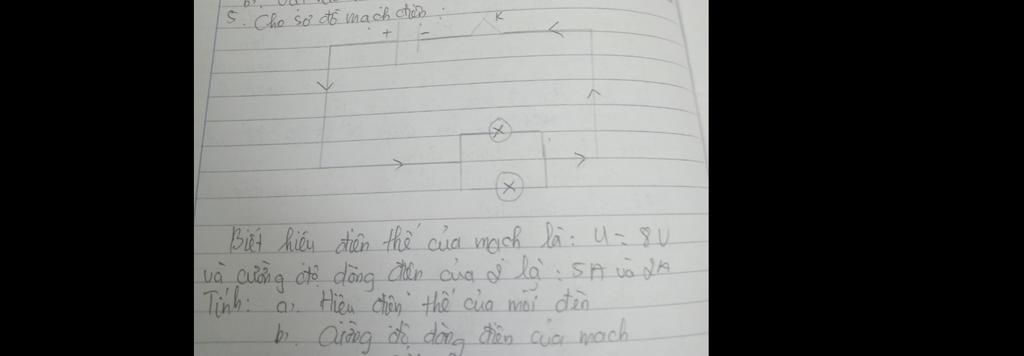 5. Cho sơ đồ mạch điện:
K
+ -
Biết hiệu điện thế của mạch là: U = 8V
và cường độ dòng điện của 2 là: 5A và 2A
Tính: a, Hiệu điện thế của mỗi đèn
b, Cường độ dòng điện của mạch